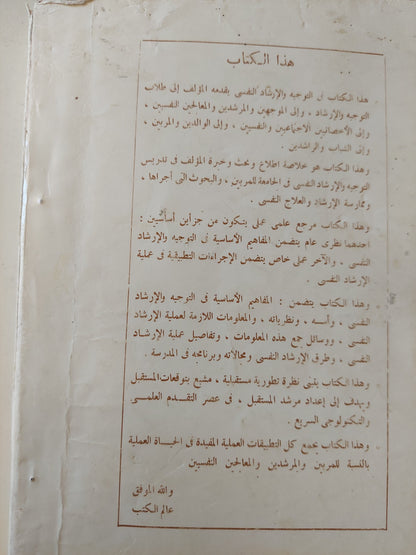 هذا الكتاب
• هذا الكتاب فى التوجيه والإرشاد النفسى يقدمه المؤلف إلى طلاب
التوجيه والإرشاد ، وإلى الموجهين والمرشدين والمعالجين النفسيين ،
وإلى الأخصائيين الاجتماعيين والنفسيين ، وإلى الوالدين والمربين ،
وإلى الشباب والراشدين .
• وهذا الكتاب هو خلاصة اطلاع وبحث وخبرة المؤلف فى تدريس
التوجيه والإرشاد النفسى فى الجامعة للمربين ، والبحوث التى أجراها ،
وممارسة الإرشاد والعلاج النفسى .
• وهذا الكتاب مرجع علمى عملى يتكون من جزأين أساسيين :
احدهما نظرى عام يتضمن المفاهيم الأساسية فى التوجيه والإرشاد
النفسى ، والآخر عملى خاص يتضمن الإجراءات التطبيقية فى عملية
الإرشاد النفسى .
• وهذا الكتاب يتضمن : المفاهيم الأساسية فى التوجيه والإرشاد
النفسى ، وأسسه ، ونظرياته ، والمعلومات اللازمة لعملية الإرشاد
النفسى ، ووسائل جمع هذه المعلومات ، وتفاصيل عملية الإرشاد
النفسى ، وطرق الإرشاد النفسى ومجالاته وبرنامجه فى المدرسة .
• وهذا الكتاب يتبنى نظرة تطورية مستقبلية ، مشبع بتوقعات المستقبل
ويهدف إلى إعداد مرشد المستقبل ، فى عصر التقدم العلمى
والتكنولوجى السريع .
• وهذا الكتاب يجمع كل التطبيقات العملية المفيدة فى الحياة العملية
بالنسبة للمربين والمرشدين والمعالجين النفسيين
والله الموفق
عالم الكتب